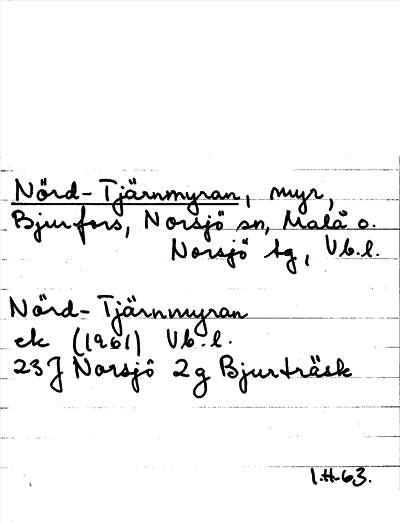 Nörd-Tjärnmyran, myr,
Bjurfors, Norsjö sn, Malå o.
Norsjö tg, Vb.l.
Nörd-Tjärnmyran
ek (1961) Vb.l.
23J Norsjö 2g Bjurträsk
1.H.63.